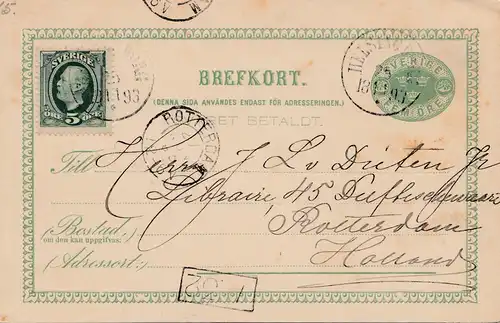 SVERIGE
ÖRE 5 ÖRE
BREFKORT.
(DENNA SIDA ANVÄNDES ENDAST FÖR ADRESSERINGEN.)
SVERIGE
ROTTERDAM
Till
Herrn J. L. v. Dieten Jr
Libraire, 45
Rotterdam
Bostad:
om den kan uppgifvas:
(Adressort:)
Holland